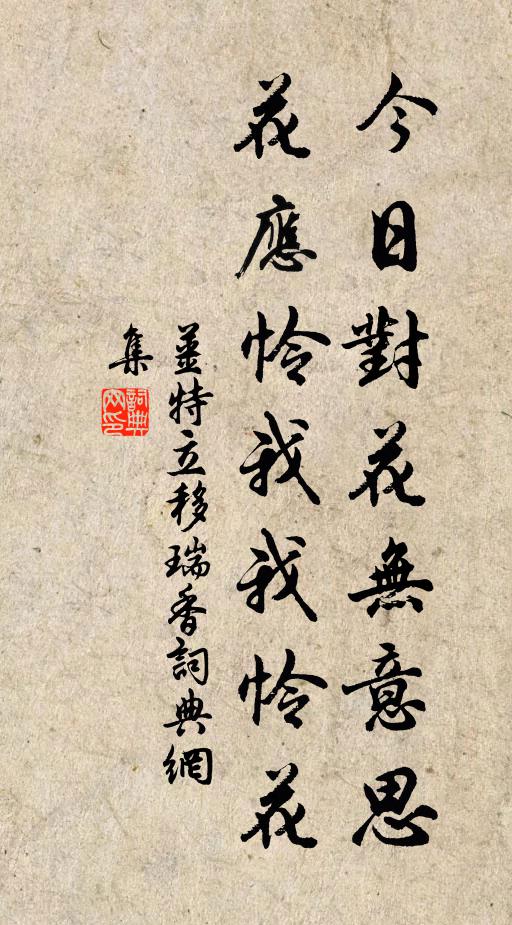 今日對花無意思
花應怜我我怜花
姜特立移瑞香詞典網
集
詞典網印